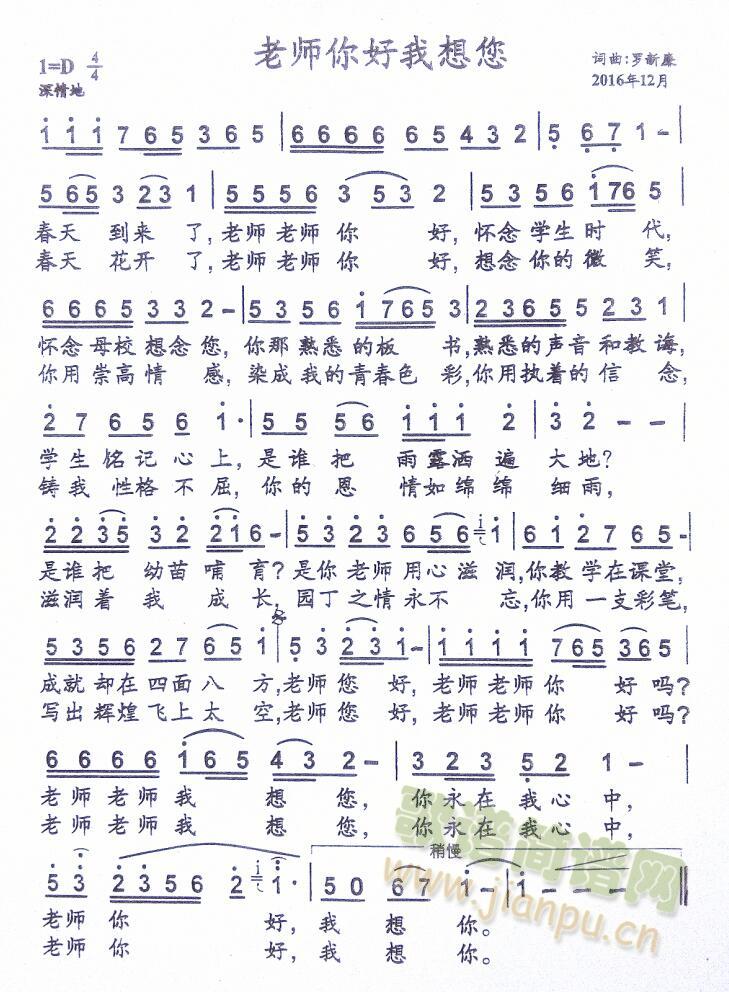 老师你好我想您
1=D 4/4
词曲:罗新廉
深情地
2016年12月
1 1 1 7 6 5 3 6 5 | 6 6 6 6 6 5 4 3 2 | 5 6 7 1 - |
5 6 5 3 2 3 1 | 5 5 5 6 3 5 3 2 | 5 3 5 6 1 7 6 5 |
春天 到来 了,老师老师你 好,怀念学生时 代,
春天 花开 了,老师老师你 好,想念你的微 笑,
6 6 6 5 3 3 2 - | 5 3 5 6 1 7 6 5 3 | 2 3 6 5 5 2 3 1 |
怀念 母校 想念 您, 你那 熟悉 的板 书,熟悉的声音和教诲,
你用 崇高 情 感, 染成 我的青春色 彩,你用执着的信 念,
2 7 6 5 6 1 · | 5 5 5 6 1 1 1 2 | 3 2 - - |
学生 铭记 心上, 是谁 把 雨露洒遍 大地?
铸我 性格 不屈, 你的 恩 情如绵绵 细雨,
2 2 3 5 3 2 2 1 6 - | 5 3 2 3 6 5 6 1 1 | 6 1 2 7 6 5 -
是谁把 幼苗 哺 育? 是你 老师 用心 滋 润,你教学在课堂,
滋润着 我 成 长, 园丁 之情 永不 忘,你用 一支彩笔,
5 3 5 6 2 7 6 5 1 | 5 3 2 3 1 - | 1 1 1 1 7 6 5 3 6 5 |
成就 却在 四面 八 方,老师 您 好, 老师老师你 好吗?
写出 辉煌 飞上 太 空,老师 您 好, 老师老师你 好吗?
6 6 6 6 1 6 5 4 3 2 - | 3 2 3 5 2 1 - |
老师 老师 我 想 您, 你永在 我心 中,
老师 老师 我 想 您, 你永在 我心 中,
稍慢
5 3 2 3 5 6 2 1 1 · | 5 0 6 7 1 - | 1 - - -
老师 你 好, 我 想 你。
老师 你 好, 我 想 你。
歌谱简谱网
www.jianpu.cn